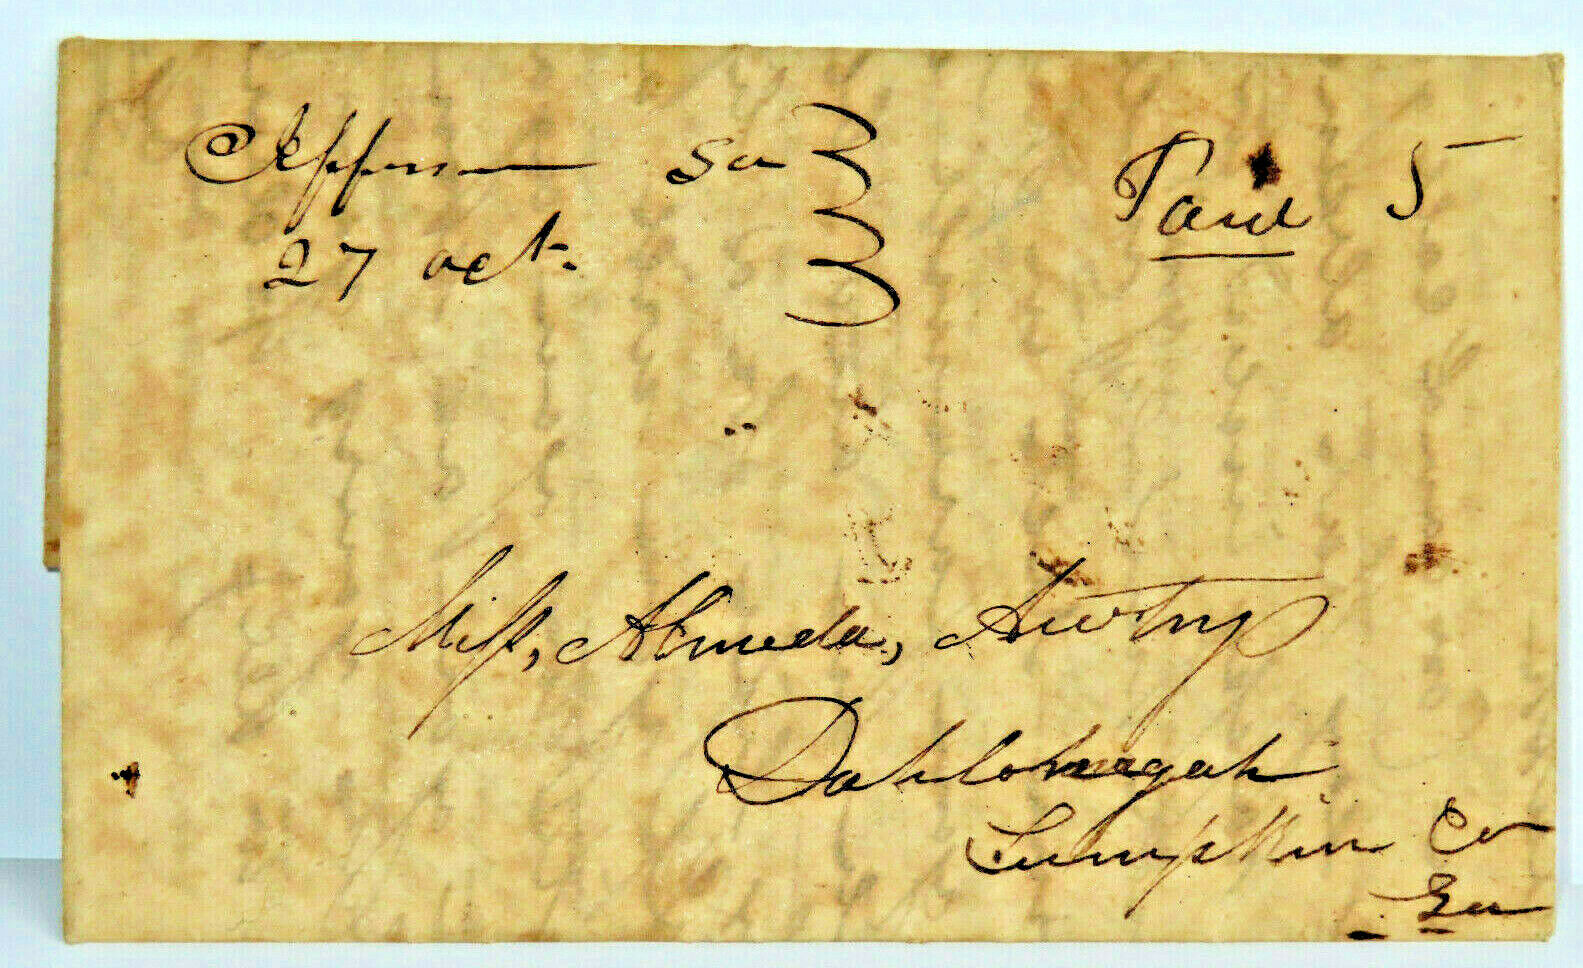 Jefferson Ga Paid 5
27 oct.
Miss, Almeda, Awtry
Dahlohnegah
Lumpkin Co
Ga